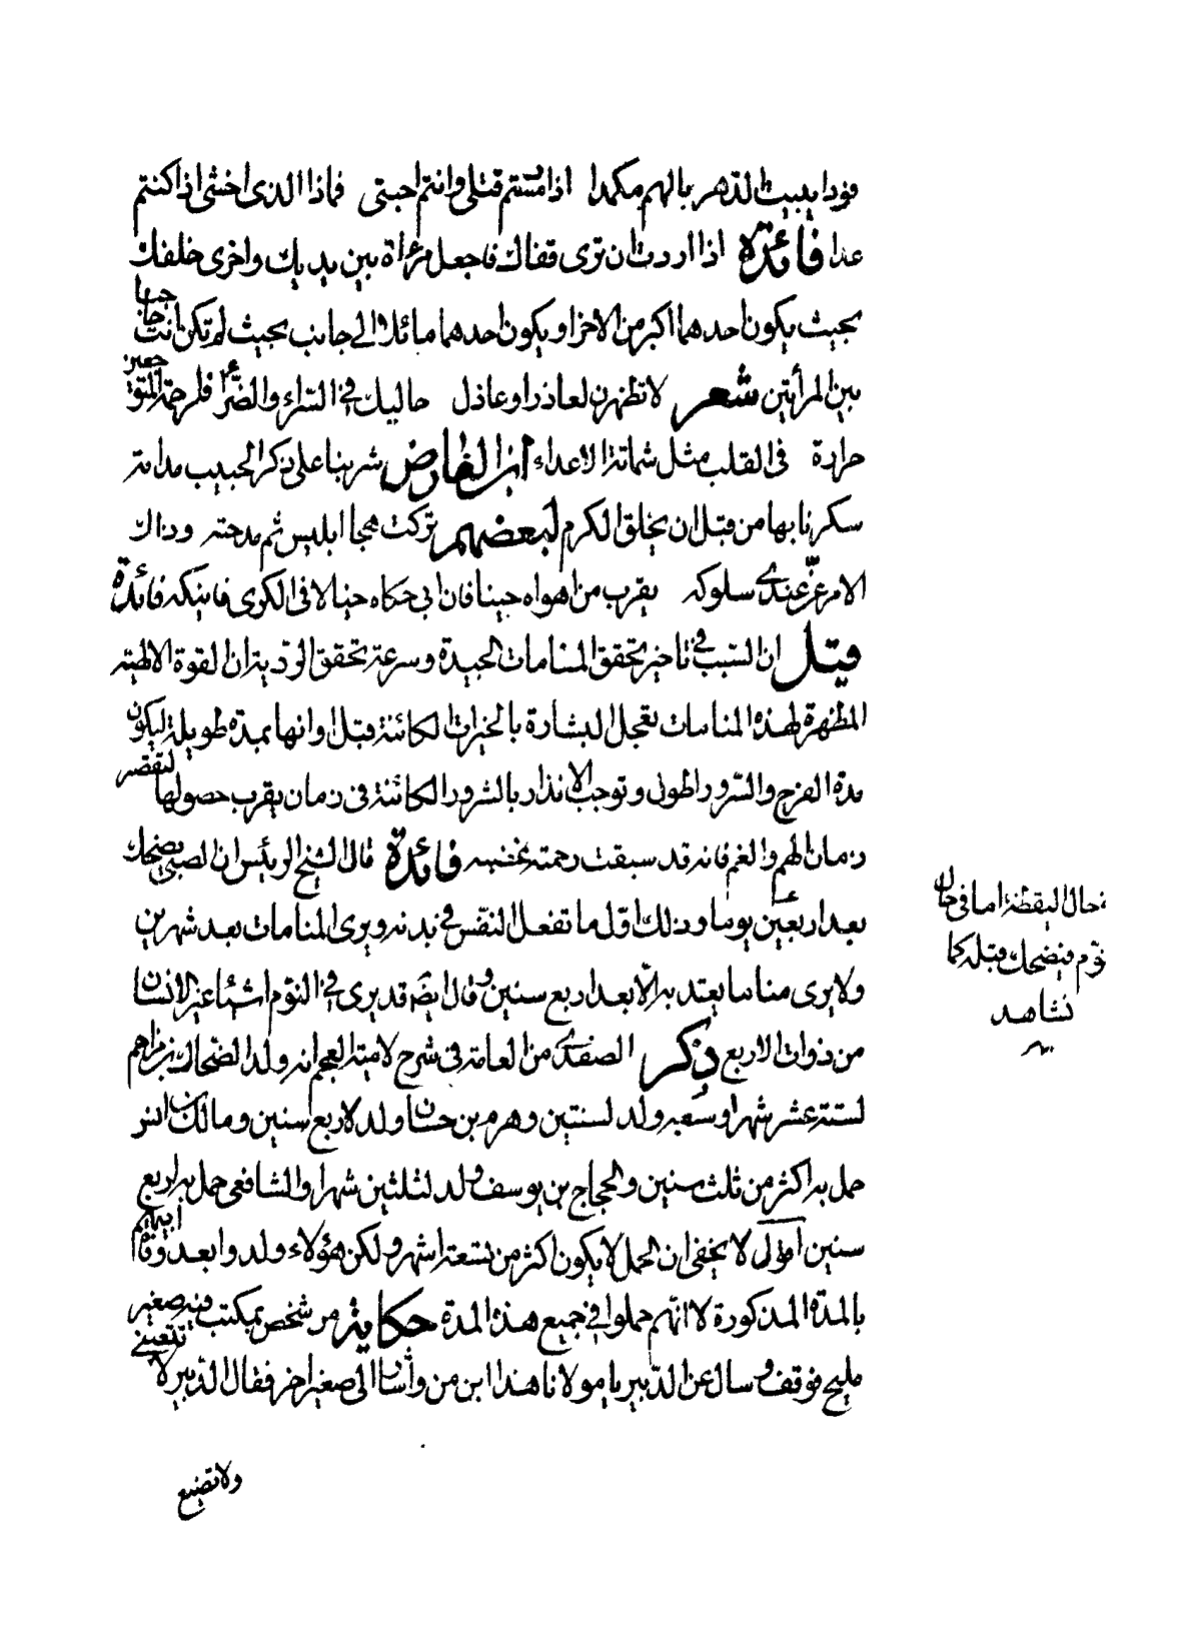 فؤدا يبيت الدهر بالهم مكمدا اذا شئتم قتلى وانتم احبتى فماذا الذى اخشى اذا كنتم
عدا فائدة اذا اردت ان ترى قفاك فاجعل مرءاة بين يديك واخرى خلفك
بحيث يكون احدهما اكبر من الاخر او يكون احدهما مائلا الى جانب بحيث لم تكن انت حاجبا
بين المرأتين شعر لا تظهرن لعاذر او عاذل حاليك فى السراء والضراء فلرحمة المتوجعين
حرارة فى القلب مثل شماتة الاعداء ابن الفارض شربنا على ذكر الحبيب مدامة
سكرنا بها من قبل ان يخلق الكرم لبعضهم تركت هجا ابليس ثم مدحته وذاك
الامر عز عندى سلوكه يقرب من اهواه حينا فان ابى حكاه خيالا فى الكرى فانيكه فائدة
قيل ان السبب فى تاخير تحقق المنامات الجيدة وسرعة تحقق الردية ان القوة الالهية
المظهرة لهذه المنامات تعجل البشارة بالخيرات الكائنة قبل اوانها بمدة طويلة ليكون
مدة الفرح والسرور اطول وتوجب الانذار بالشرور الكائنة فى زمان يقرب حصولها لتقصر
زمان الهم والغم فانه قد سبقت رحمته غضبه فائدة قال الشيخ الرئيس ان الصبى يضحك
بعد اربعين يوما وذلك اول ما تفعل النفس فى بدنه ويرى المنامات بعد شهرين
ولا يرى مناما يعتد به الا بعد اربع سنين وقال ايضه قد يرى فى النوم اشياء غير الانسان
من ذوات الاربع ذكر الصفدى من العامة فى شرح لامية العجم انه ولد الضحاك بن مزاحم
لستة عشر شهرا وشعبه ولد لسنتين وهرم بن حسان ولد لاربع سنين ومالك بن انس
حمل به اكثر من ثلث سنين والحجاج بن يوسف ولد لثلثين شهرا والشافعى حمل به اربع
سنين اقول لا يخفى ان الحمل لا يكون اكثر من تسعة اشهر ولكن هؤلاء ولدوا بعد وفات ابيهم
بالمدة المذكورة لا انهم حملوا فى جميع هذه المدة حكاية مر شخص بمكتب فيه صغير
مليح فوقف وسال عن الدبير يا مولانا هذا ابن من واشار الى صغير اخر فقال الدبير لا تتعبنى
ولا تضيع
حال اليقظة اما فى حال
نوم فيضحك قبله كما
نشاهد